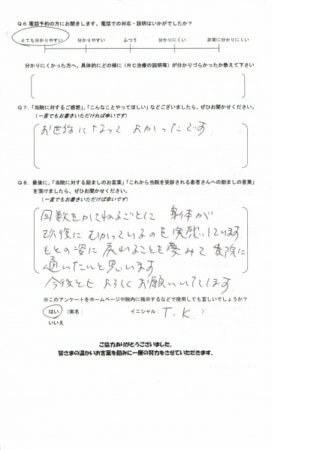 Q6.電話予約の方にお聞きします。電話での対応・説明はいかがでしたか?
とても分かりやすい 分かりやすい ふつう 分かりにくい 非常に分かりにくい
分かりにくかった方へ、具体的にどの様に(RC治療の説明等)が分かりづらかったか教えて下さい
Q7.「当院に対するご感想」、「こんなことやってほしい」などございましたら、ぜひお聞かせください。
(一言でもお書きいただければ幸いです)
お世話になって よかったです
Q8.最後に、「当院に対する励ましのお言葉」「これから当院を受診される患者さんへの励ましの言葉」
を頂けましたら、ぜひお聞かせください。
(一言でもお書きいただければ幸いです)
回数をかさねるごとに 身体が
改復にむかっているのを実感しています
もとの姿に戻れることを夢みて 貴院に
通いたいと思います
今後とも よろしくお願いいたします
※このアンケートをホームページや院内に掲示するなどで使用しても宜しいでしょうか?
はい (実名: イニシャル T.K. )
いいえ
ご協力ありがとうございました。
皆さまの温かいお言葉を励みに一層の努力をさせていただきます。